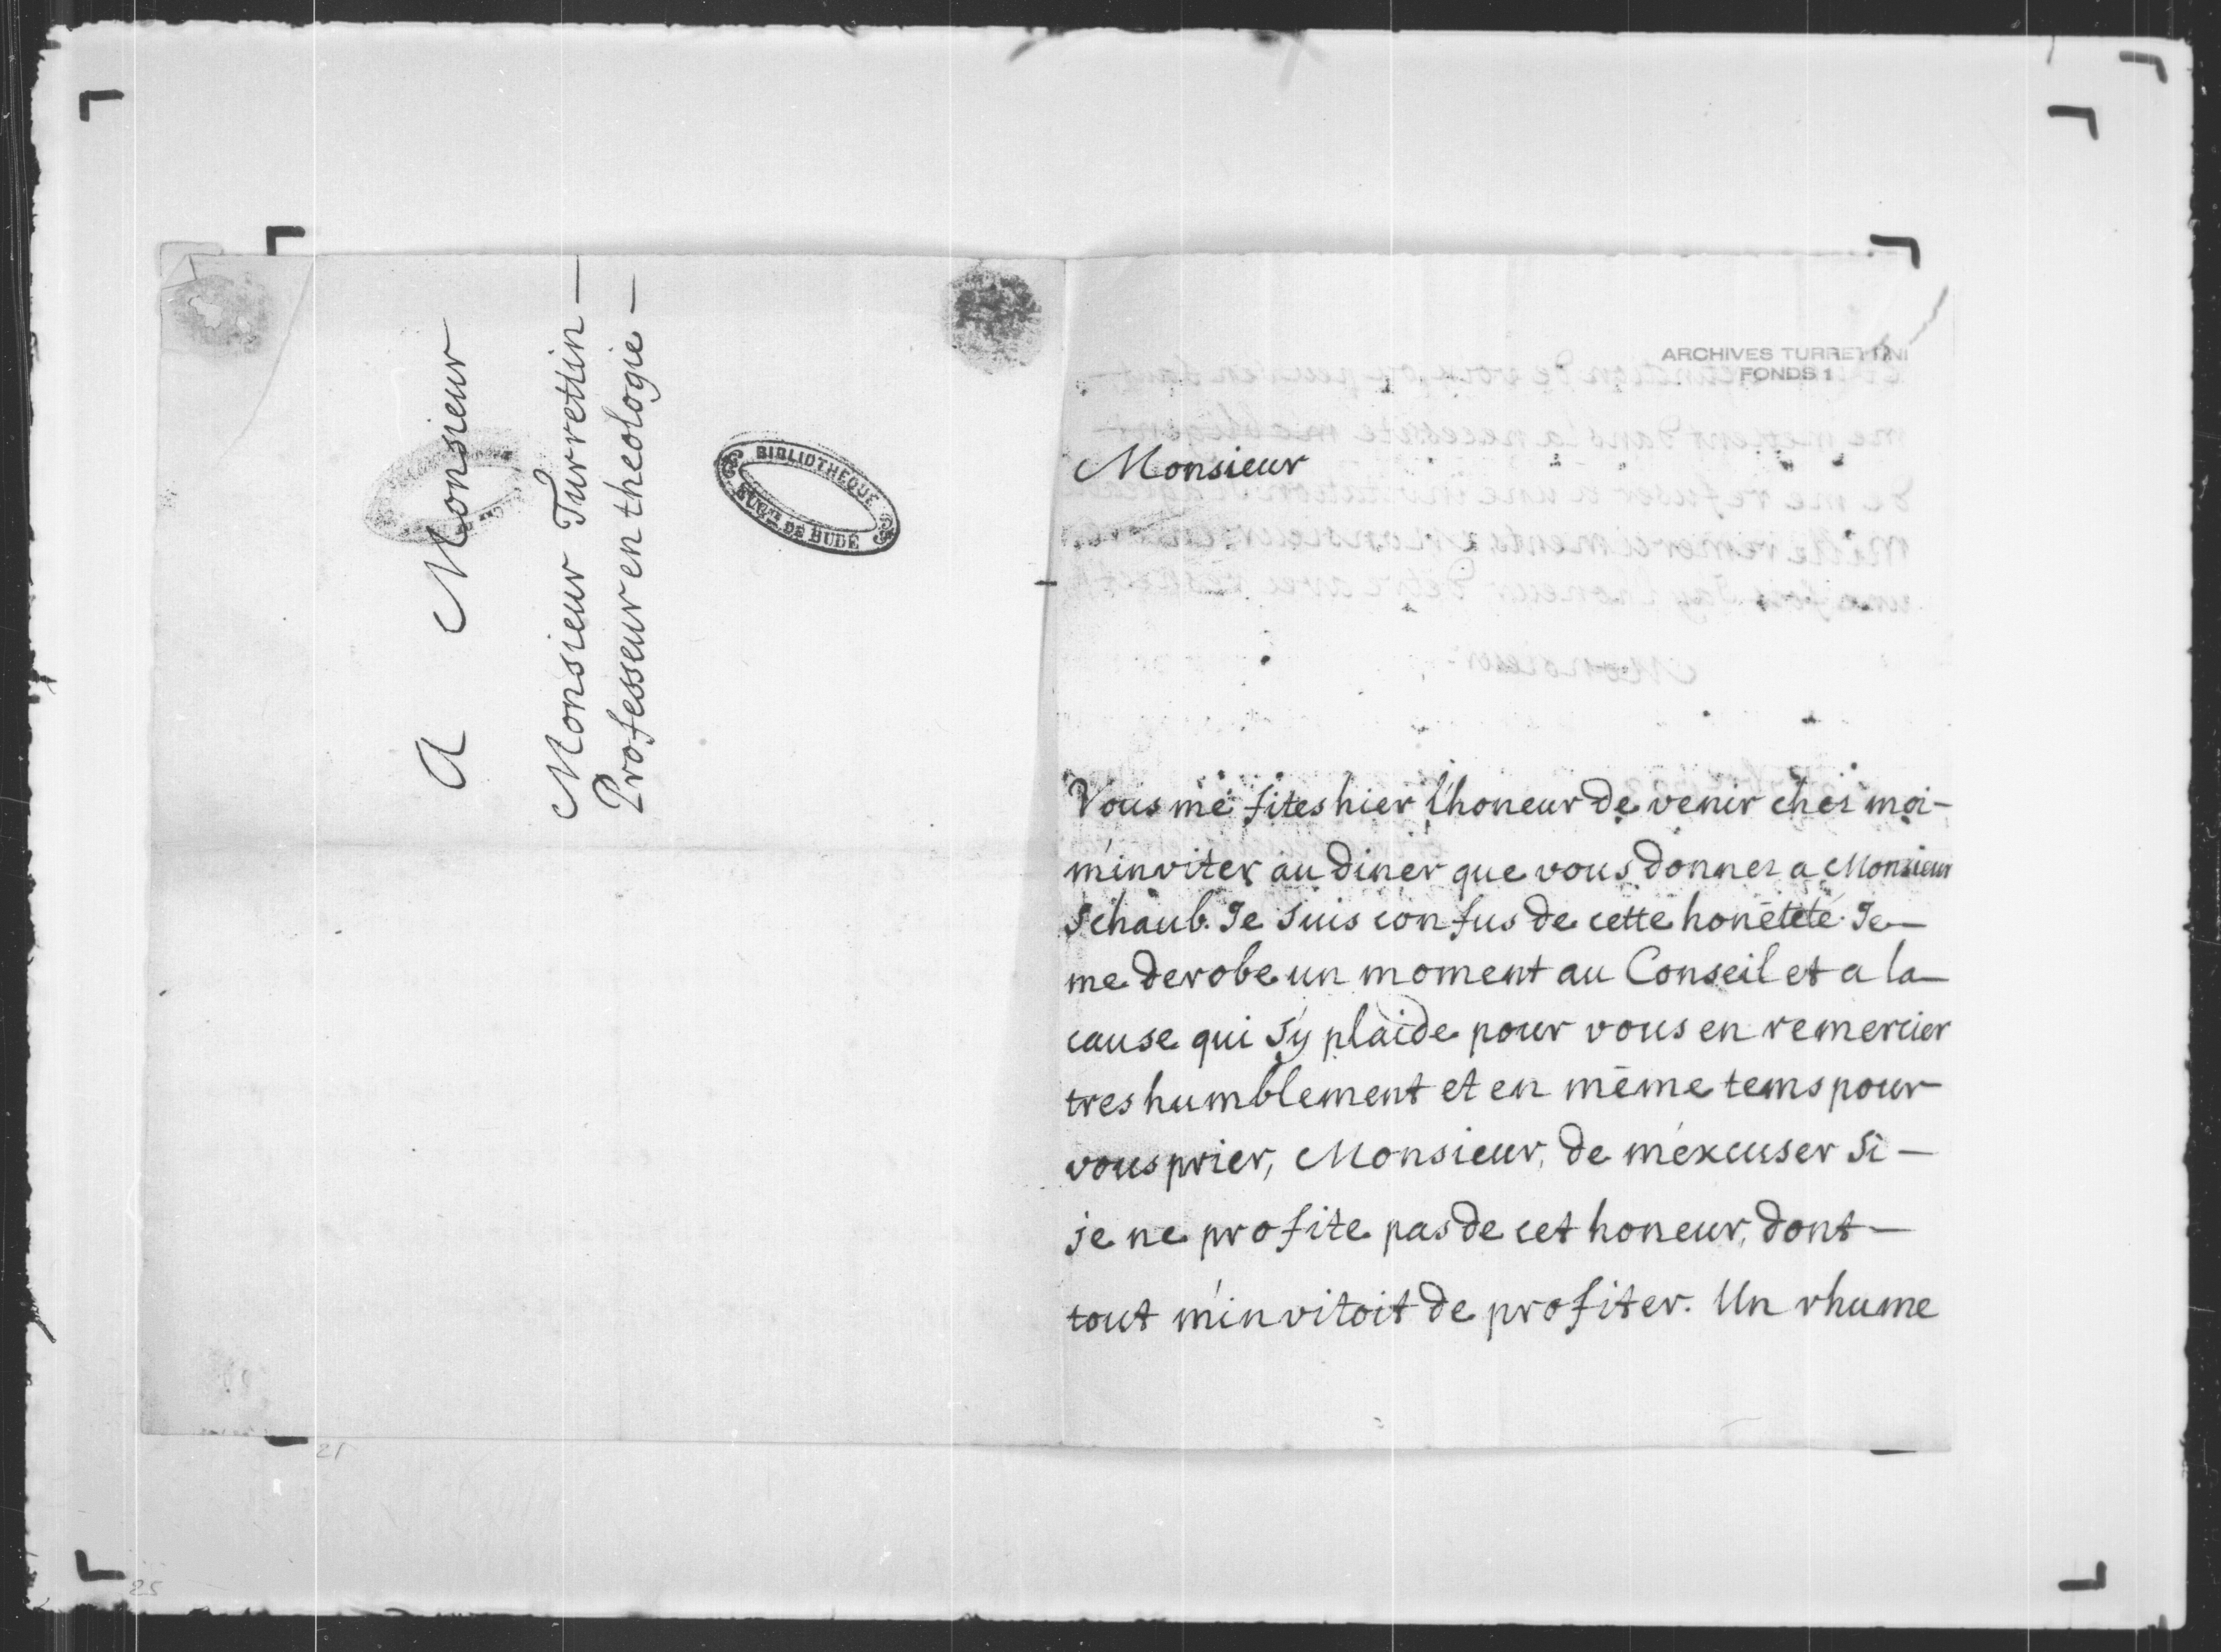 A Monsieur
Monsieur Turrettin —
Professeur en theologie —
BIBLIOTHEQUE
EUG.NE DE BUDÉ
ARCHIVES TURRETTINI
FONDS 1
Monsieur
Vous me fites hier l'honeur de venir chez moi —
m'inviter au diner que vous donnez a Monsieur
Schaub. Je suis confus de cette honêteté. Je —
me derobe un moment au Conseil et a la —
cause qui s'y plaide pour vous en remercier
tres humblement et en même tems pour
vous prier, Monsieur, de m'excuser si —
je ne profite pas de cet honeur, dont —
tout m'invitoit de profiter. Un rhume
21
25